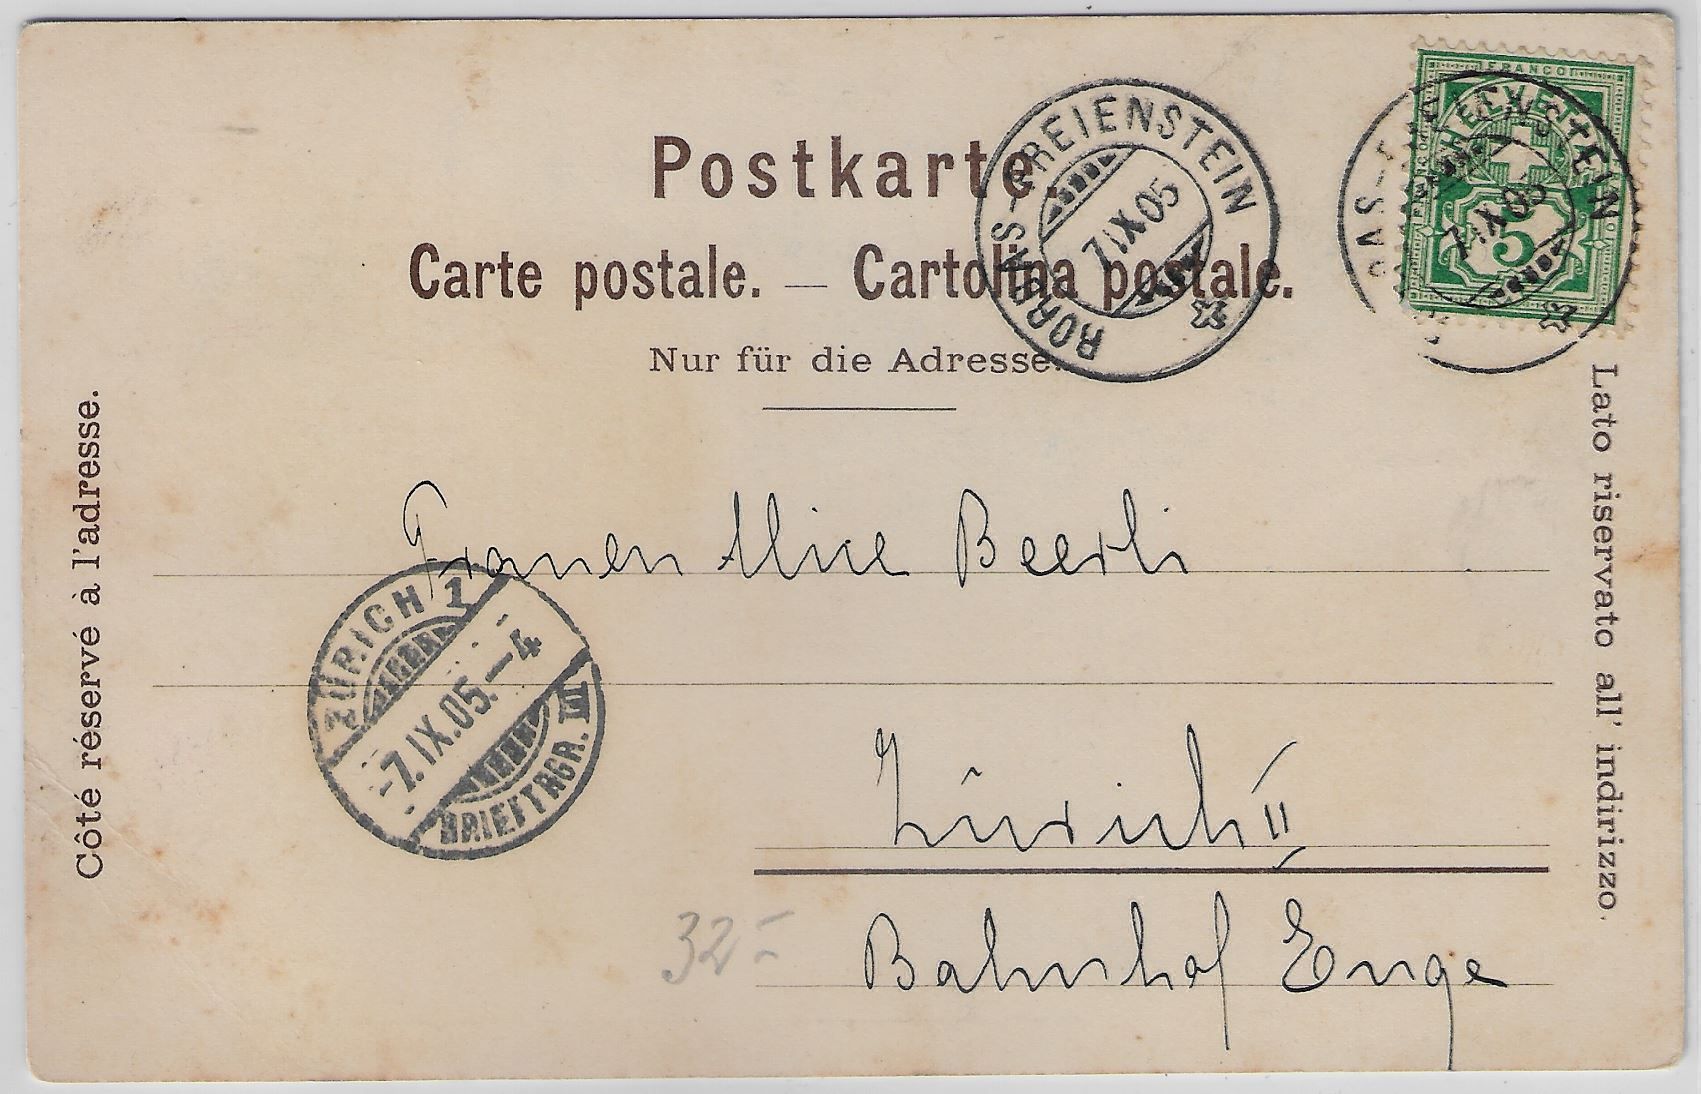 FRANCO
HELVETIA
5
Postkarte.
RORBAS-FREIENSTEIN
7 IX 05
RBAS-FREIENSTEIN
7 IX 05
Carte postale. — Cartolina postale.
Nur für die Adresse.
Côté réservé à l'adresse.
Lato riservato all' indirizzo.
Frauen Alice Beerli
ZÜRICH 1
-7.IX.05.-4
BRIEFTRGR. III
Zürich II
Bahnhof Enge
32.-